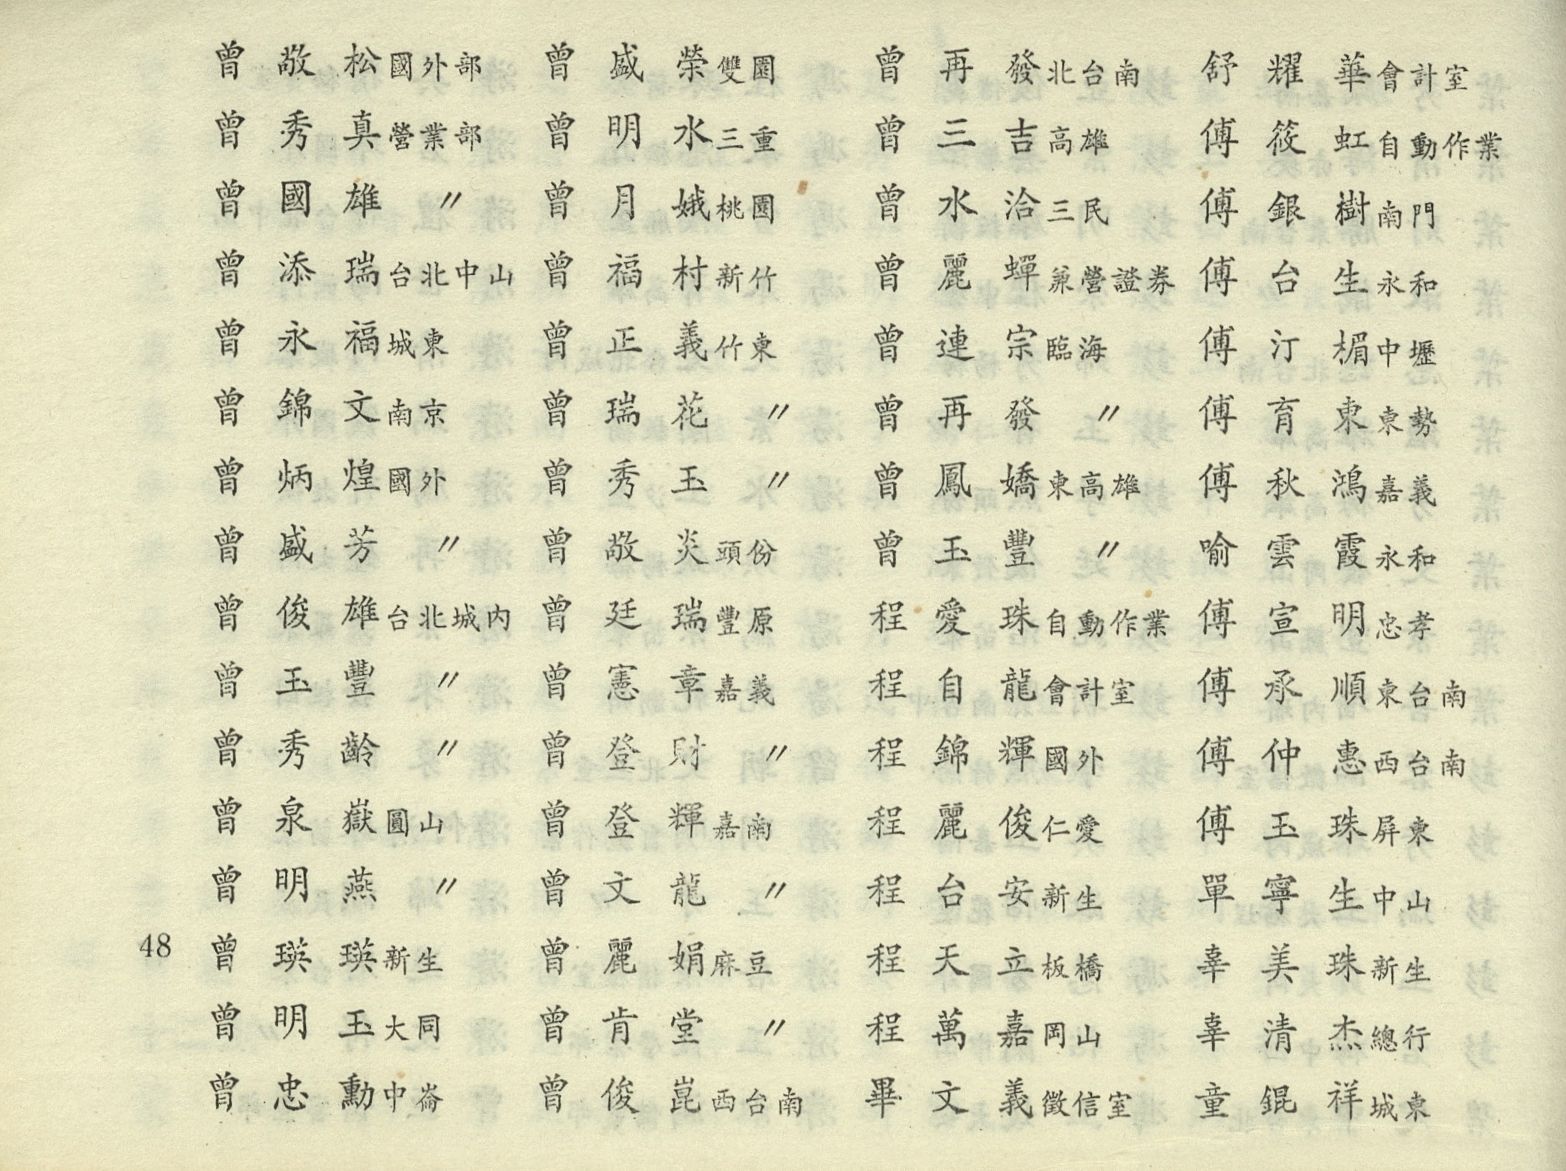 曾敬松國外部
曾秀真營業部
曾國雄〃
曾添瑞台北中山
曾永福城東
曾錦文南京
曾炳煌國外
曾盛芳〃
曾俊雄台北城内
曾玉豐〃
曾秀齡〃
曾泉嶽圓山
曾明燕〃
曾瑛瑛新生
曾明玉大同
曾忠勳中崙
曾盛榮雙園
曾明水三重
曾月娥桃園
曾福村新竹
曾正義竹東
曾瑞花〃
曾秀玉〃
曾敬炎頭份
曾廷瑞豐原
曾憲章嘉義
曾登財〃
曾登輝嘉南
曾文龍〃
曾麗娟麻豆
曾肯堂〃
曾俊崑西台南
曾再發北台南
曾三吉高雄
曾水治三民
曾麗蟬兼營證券
曾連宗臨海
曾再發〃
曾鳳嬌東高雄
曾玉豐〃
程愛珠自動作業
程自龍會計室
程錦輝國外
程麗俊仁愛
程台安新生
程天立板橋
程萬嘉岡山
畢文義徵信室
舒耀華會計室
傅筱虹自動作業
傅銀樹南門
傅台生永和
傅汀楣中壢
傅育東東勢
傅秋鴻嘉義
喻雲霞永和
傅宣明忠孝
傅承順東台南
傅仲惠西台南
傅玉珠屏東
單寧生中山
辜美珠新生
辜清杰總行
童錕祥城東
48